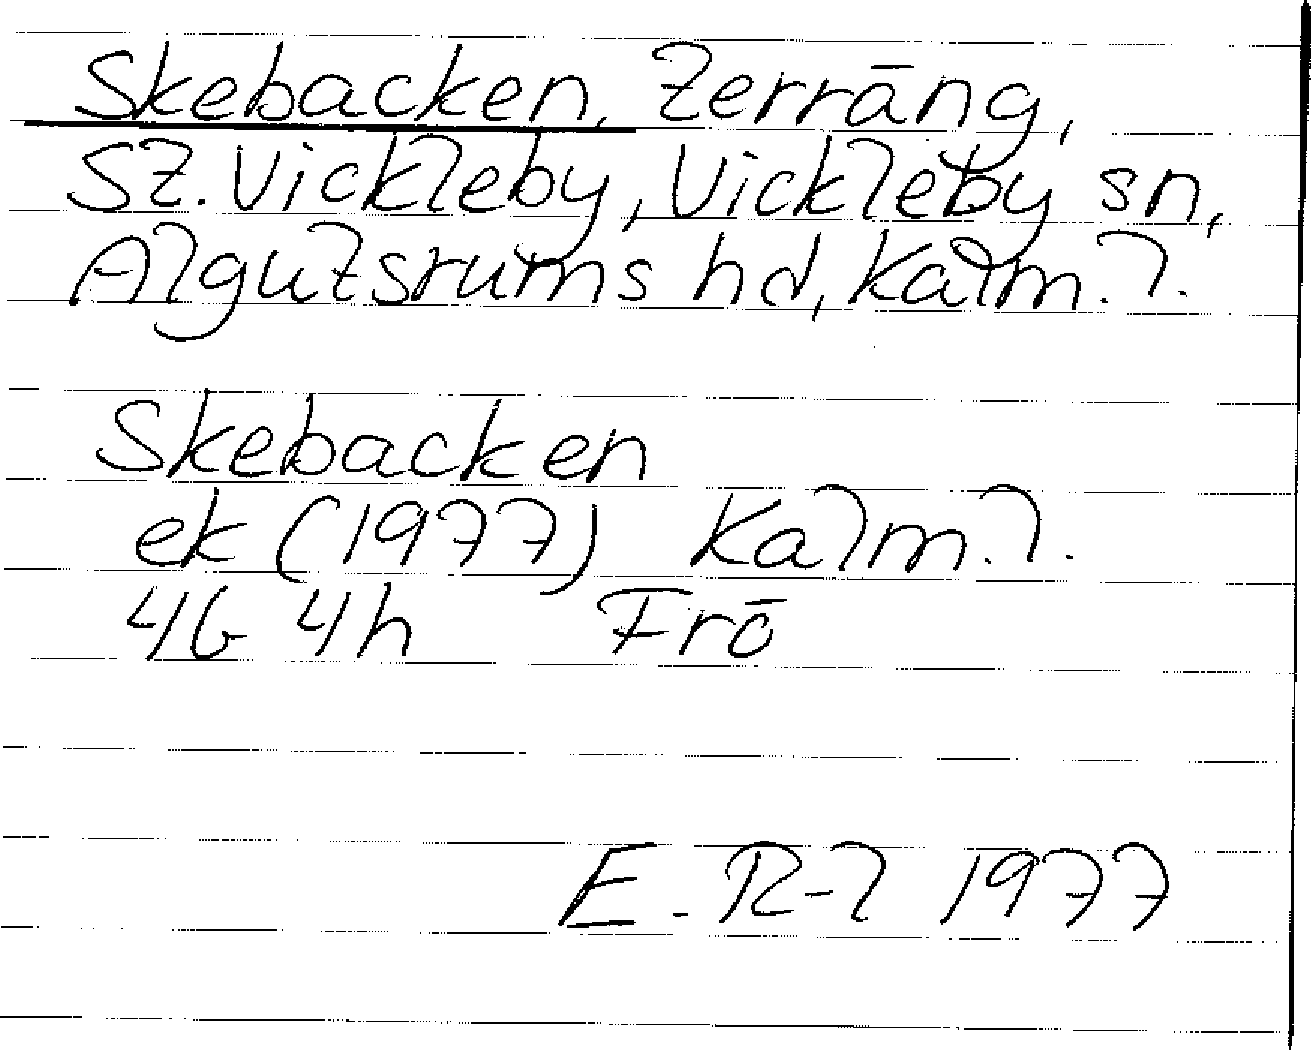 Skebacken, terräng,
St. Vickleby, Vickleby sn,
Algutsrums hd, Kalm. l.
Skebacken
ek (1977) Kalm. l.
4G 4h Frö
E. R-l 1977